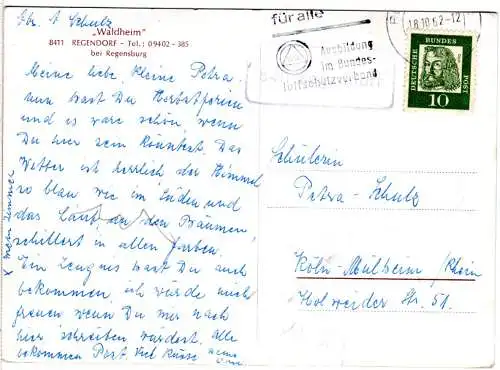 Schulz
„Waldheim"
8411 REGENDORF - Tel.: 09402 - 385
bei Regensburg
Meine liebe, kleine Petra.
nun hast Du Herbstferien
und es wäre schön, wenn
Du hier sein könntest. Das
Wetter ist herrlich der Himmel
so blau wie im Süden und
das Laub an den Bäumen
schillert in allen Farben.
Ein Zeugnis hast Du auch
bekommen, ich würde mich
freuen wenn Du mir nach
hier schreiben würdest. Alle
bekommen Post. Viel Küsse Deine
Omi
x mein Zimmer
für alle
Ausbildung
im Bundes-
luftschutzverband
18.10.62-12
DEUTSCHE BUNDES POST
10
Schülerin
Petra Schulz
Köln-Mülheim/Rhein
Holweider Str. 51.